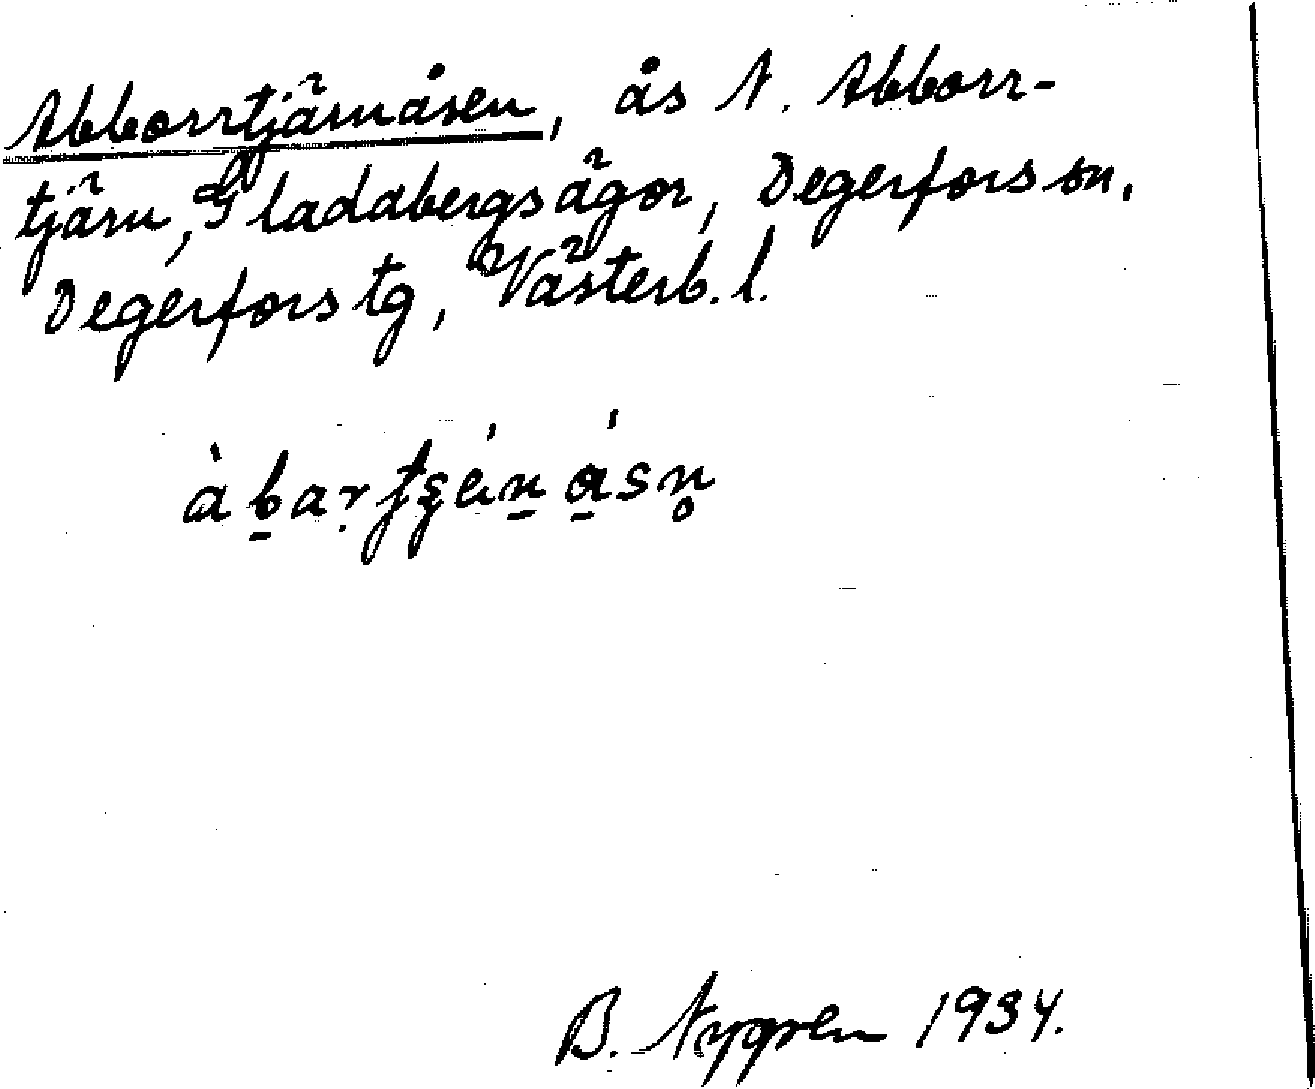 Abborrtjärnåsen, ås N. Abborr-
tjärn, Gladabergs ägor, Degerfors sn,
Degerfors tg, Västerb. l.
B. Nygren 1934.